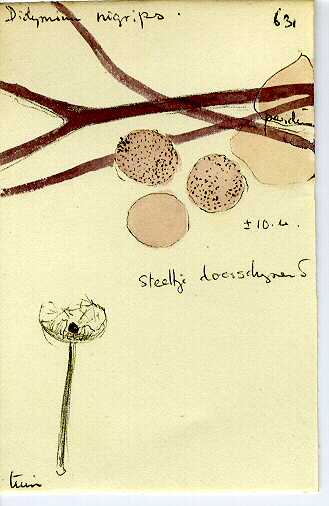 Didymium nigripes.
631
± 10. u.
steeltje doorschijnend
tuin